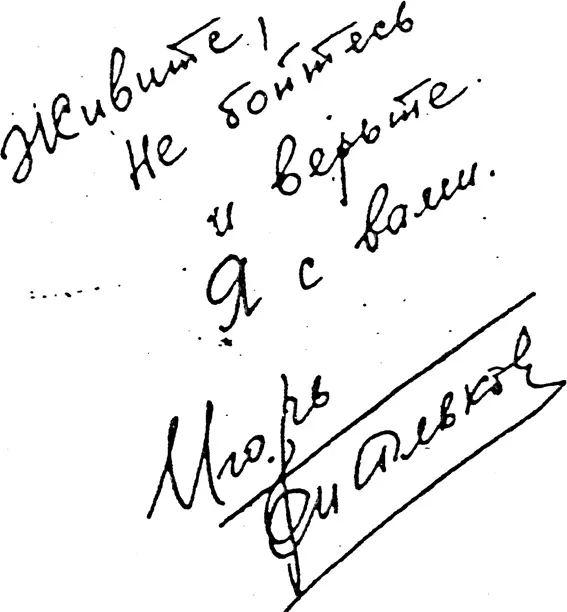 Живите,
Не бойтесь
и верьте.
Я с вами.
Игорь